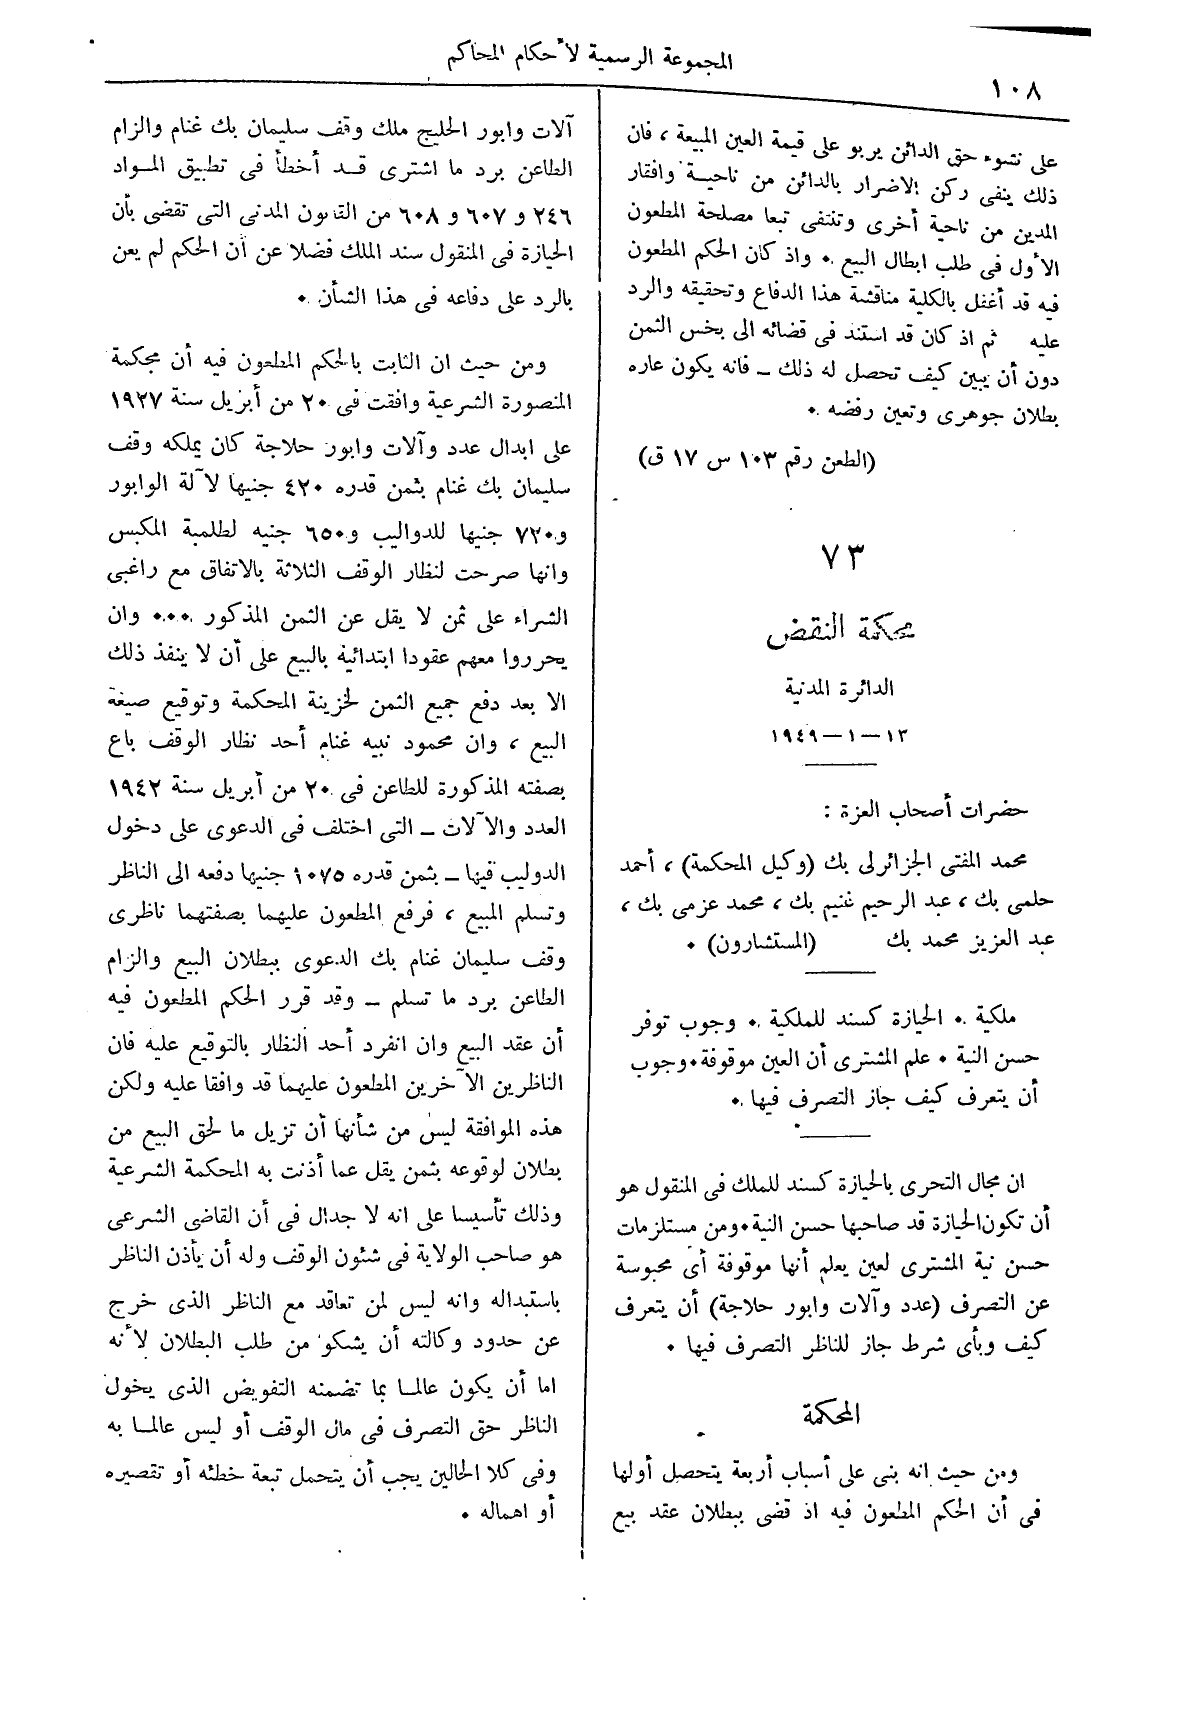 المجموعة الرسمية لأحكام المحاكم
١٠٨
على نشوء حق الدائن يربو على قيمة العين المبيعة ، فان
ذلك ينفى ركن الاضرار بالدائن من ناحية وافقار
المدين من ناحية أخرى وتنتفى تبعا مصلحة المطعون
الأول فى طلب ابطال البيع . واذ كان الحكم المطعون
فيه قد أغفل بالكلية مناقشة هذا الدفاع وتحقيقه والرد
عليه ثم اذ كان قد استند فى قضائه الى بخس الثمن
دون أن يبين كيف تحصل له ذلك ـ فانه يكون عاره
بطلان جوهرى وتعين رفضه .
(الطعن رقم ١٠٣ س ١٧ ق)
٧٣
محكمة النقض
الدائرة المدنية
١٣ – ١ – ١٩٤٩
حضرات أصحاب العزة :
محمد المفتى الجزائرلى بك (وكيل المحكمة) ، أحمد
حلمى بك ، عبد الرحيم غنيم بك ، محمد عزمى بك ،
عبد العزيز محمد بك (المستشارون) .
ملكية . الحيازة كسند للملكية . وجوب توفر
حسن النية . علم المشترى أن العين موقوفة . وجوب
أن يتعرف كيف جاز التصرف فيها .
ان مجال التحرى بالحيازة كسند للملك فى المنقول هو
أن تكون الحيازة قد صاحبها حسن النية . ومن مستلزمات
حسن نية المشترى لعين يعلم أنها موقوفة أى محبوسة
عن التصرف (عدد وآلات وابور حلاجة) أن يتعرف
كيف وبأى شرط جاز للناظر التصرف فيها .
المحكمة
ومن حيث انه بنى على أسباب أربعة يتحصل أولها
فى أن الحكم المطعون فيه اذ قضى ببطلان عقد بيع
آلات وابور الحليج ملك وقف سليمان بك غنام والزام
الطاعن برد ما اشترى قد أخطأ فى تطبيق المواد
٢٤٦ و ٦٠٧ و ٦٠٨ من القانون المدنى التى تقضى بأن
الحيازة فى المنقول سند الملك فضلا عن أن الحكم لم يعن
بالرد على دفاعه فى هذا الشأن .
ومن حيث ان الثابت بالحكم المطعون فيه أن محكمة
المنصورة الشرعية وافقت فى ٢٠ من أبريل سنة ١٩٢٧
على ابدال عدد وآلات وابور حلاجة كان يملكه وقف
سليمان بك غنام بثمن قدره ٤٢٠ جنيها لآلة الوابور
و٧٢٠ جنيها للدواليب و٦٥٠ جنيه لطلمبة المكبس
وانها صرحت لنظار الوقف الثلاثة بالاتفاق مع راغبى
الشراء على ثمن لا يقل عن الثمن المذكور ... وان
يحرروا معهم عقودا ابتدائية بالبيع على أن لا ينفذ ذلك
الا بعد دفع جميع الثمن لخزينة المحكمة وتوقيع صيغة
البيع ، وان محمود نبيه غنام أحد نظار الوقف باع
بصفته المذكورة للطاعن فى ٢٠ من أبريل سنة ١٩٤٢
العدد والآلات ـ التى اختلف فى الدعوى على دخول
الدوليب فيها ـ بثمن قدره ١٠٧٥ جنيها دفعه الى الناظر
وتسلم المبيع ، فرفع المطعون عليهما بصفتهما ناظرى
وقف سليمان غنام بك الدعوى ببطلان البيع والزام
الطاعن برد ما تسلم ـ وقد قرر الحكم المطعون فيه
أن عقد البيع وان انفرد أحد النظار بالتوقيع عليه فان
الناظرين الآخرين المطعون عليهما قد وافقا عليه ولكن
هذه الموافقة ليس من شأنها أن تزيل ما لحق البيع من
بطلان لوقوعه بثمن يقل عما أذنت به المحكمة الشرعية
وذلك تأسيسا على انه لا جدال فى أن القاضى الشرعى
هو صاحب الولاية فى شئون الوقف وله أن يأذن الناظر
باستبداله وانه ليس لمن تعاقد مع الناظر الذى خرج
عن حدود وكالته أن يشكو من طلب البطلان لأنه
اما أن يكون عالما بما تضمنه التفويض الذى يخول
الناظر حق التصرف فى مال الوقف أو ليس عالما به
وفى كلا الحالين يجب أن يتحمل تبعة خطئه أو تقصيره
أو اهماله .